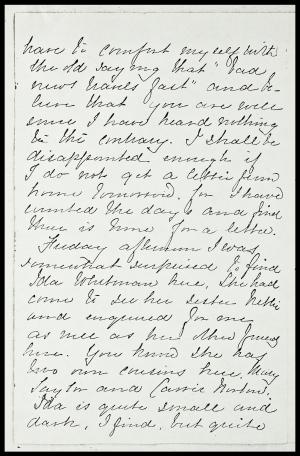 have to comfort myself with
the old saying that "bad
news travels fast" and be-
lieve that you are well
since I have heard nothing
to the contrary. I shall be
disappointed enough if
I do not get a letter from
home tomorrow, for I have
counted the days and find
there is time for a letter.
Friday afternoon I was
somewhat surprised to find
Ida Whitman here, She had
come to see her sister Nettie
and enquired for me
as well as her other friends
here. You know she has
two own cousins here, Mary
Saylor and Carrie
Ida is quite small and
dark, I find, but quite